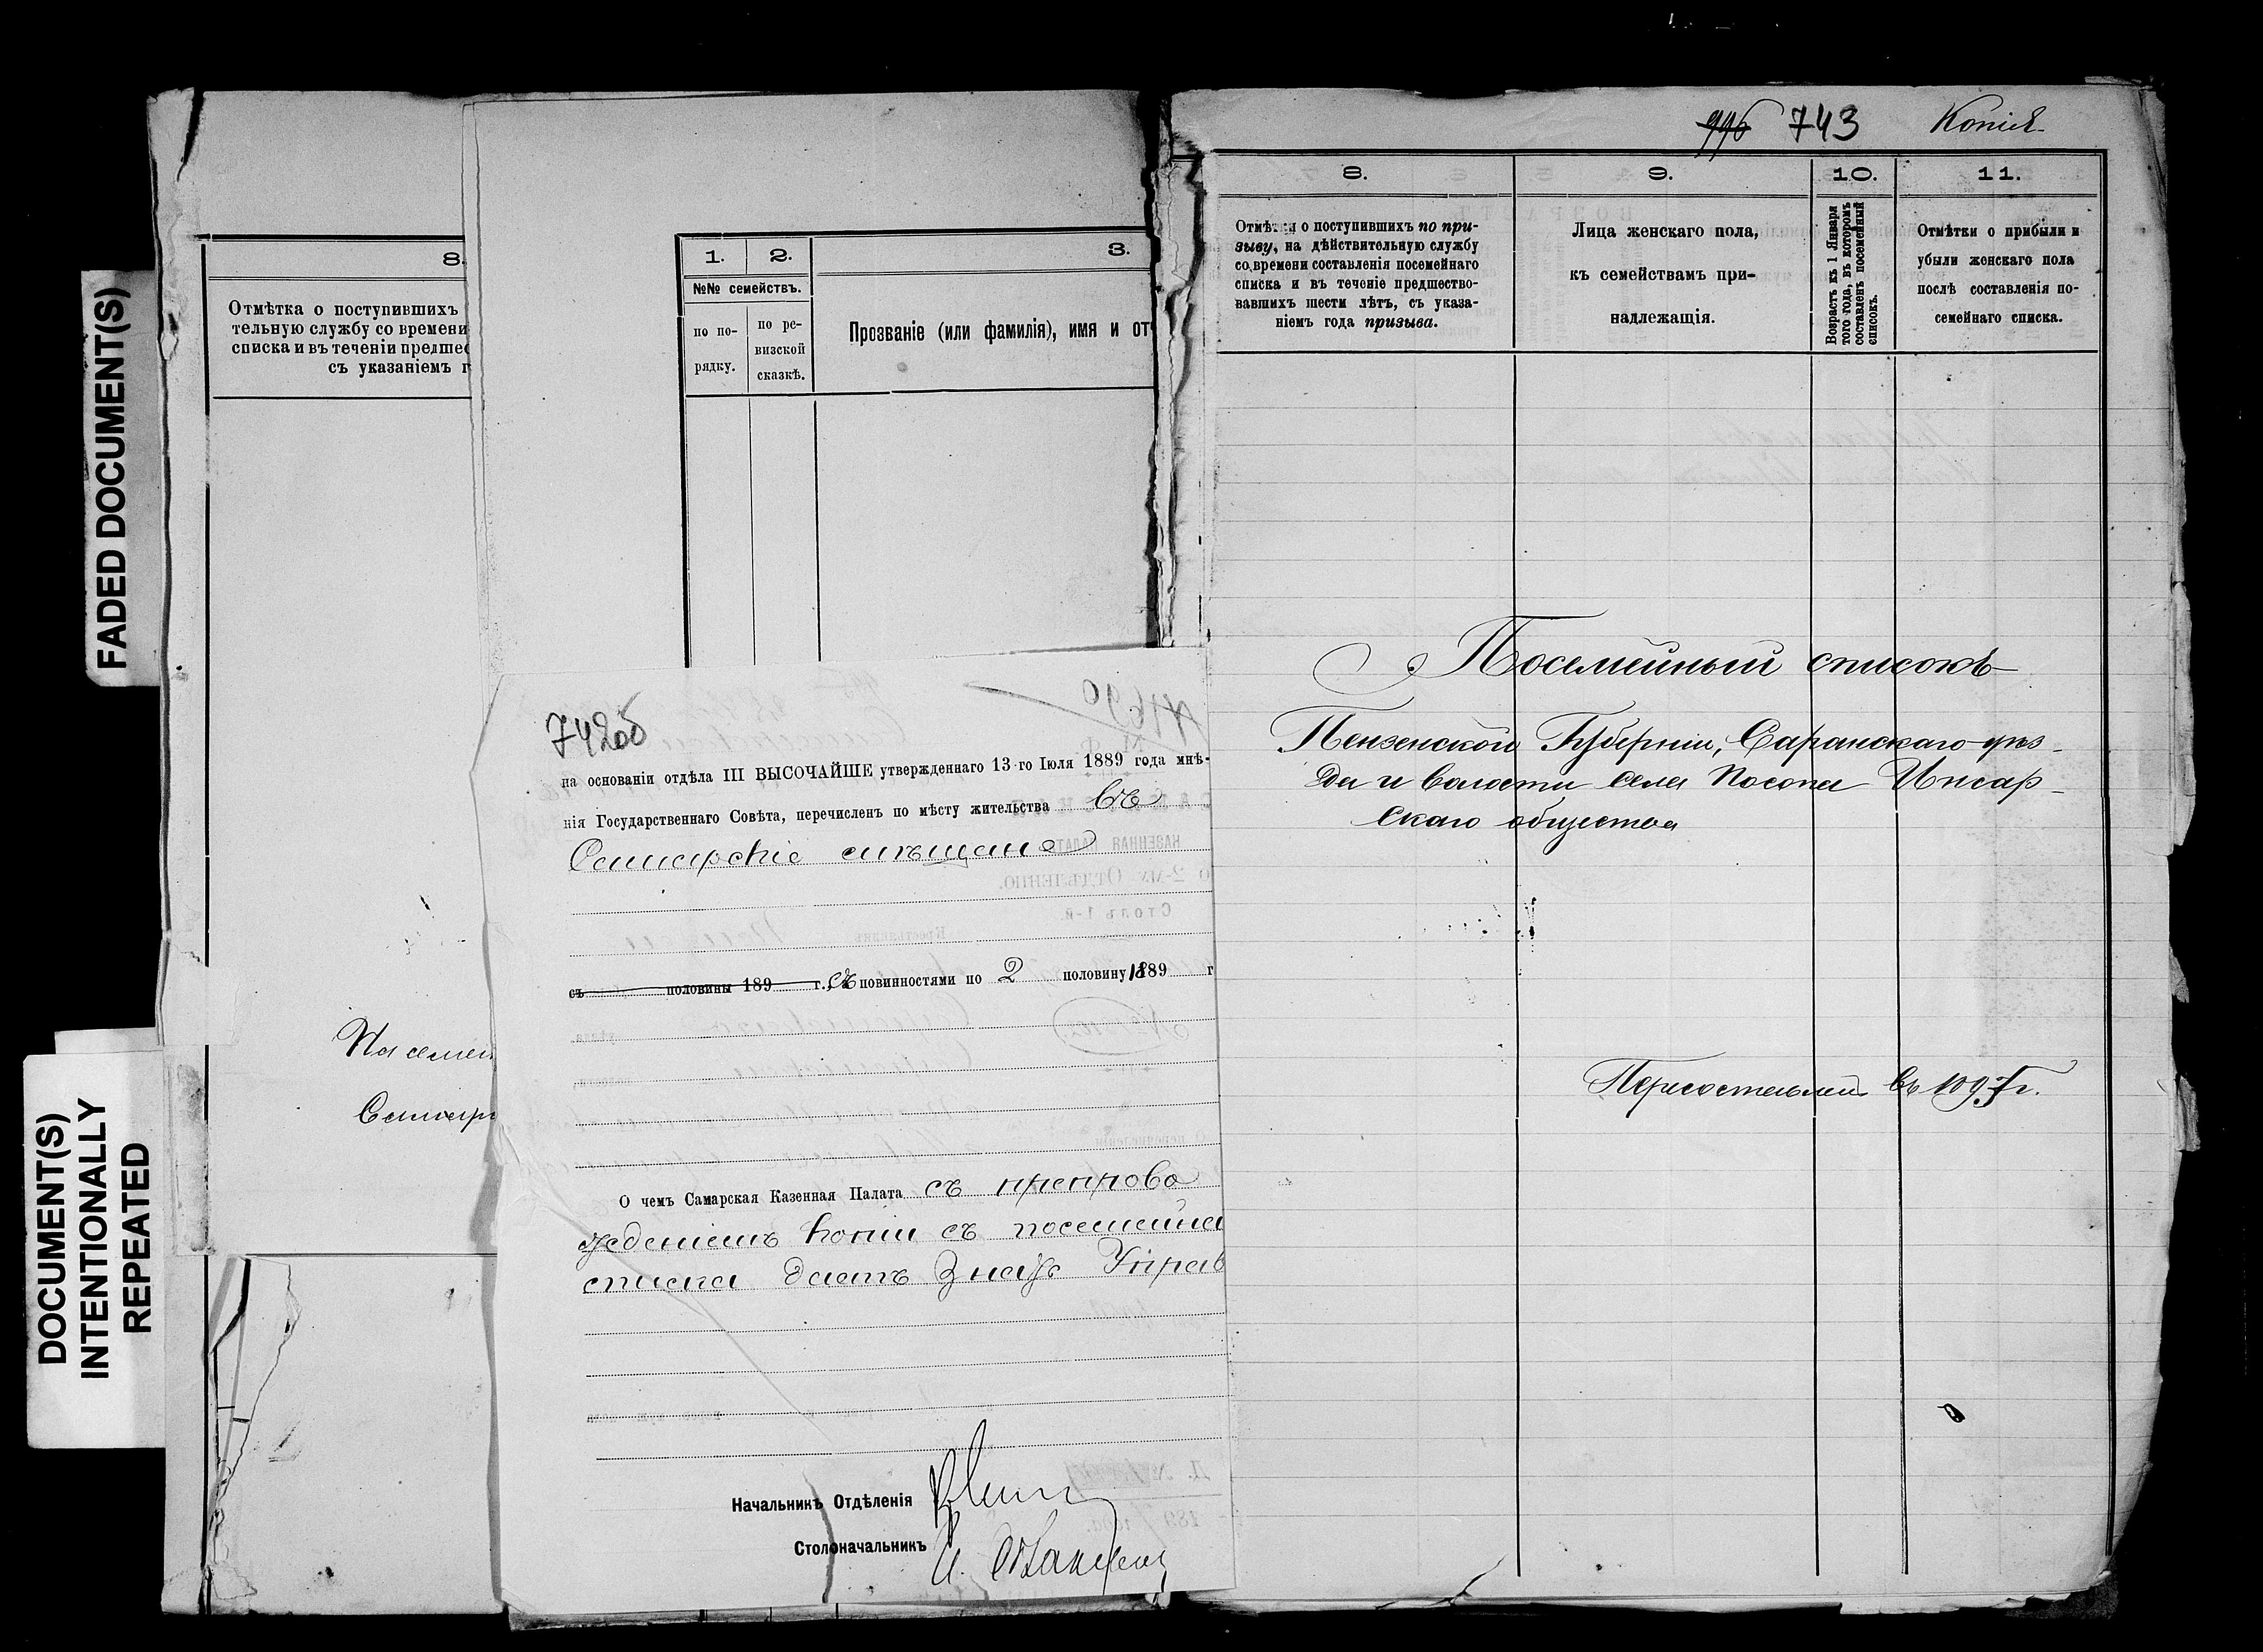 FADED DOCUMENT(S)
DOCUMENT(S)
INTENTIONALLY
REPEATED
8.
Отмѣтка о поступившихъ
тельную службу со времени
списка и въ теченіи предшес
съ указаніемъ г
На семей
Самар
1. 2. 3.
№№ семействъ.
по по-
рядку.
по ре-
визской
сказкѣ.
Прозваніе (или фамилія), имя и от
742об
на основаніи отдѣла III ВЫСОЧАЙШЕ утвержденнаго 13-го Іюля 1889 года мнѣ-
нія Государственнаго Совѣта, перечисленъ по мѣсту жительства въ
Самарскіе мѣщане
съ половины 189 г., съ повинностями по 2 половину 1889 г
О чемъ Самарская Казенная Палата съ препрово
жденіемъ копіи съ посемейна
списка даетъ знать Управ
Начальникъ Отдѣленія
Столоначальникъ
996 743 Копія
8. 9. 10. 11.
Отмѣтки о поступившихъ по при-
зыву, на дѣйствительную службу
со времени составленія посемейнаго
списка и въ теченіе предшество-
вавшихъ шести лѣтъ, съ указа-
ніемъ года призыва.
Лица женскаго пола,
къ семействамъ при-
надлежащія.
Возрастъ къ 1 Января
того года, въ которомъ
составленъ посемейный
списокъ.
Отмѣтки о прибыли и
убыли женскаго пола
послѣ составленія по-
семейнаго списка.
Посемейный списокъ
Пензенской Губерніи, Саранскаго уѣз-
да и волости села Посопа Инсар-
скаго общества
въ 1897 г.